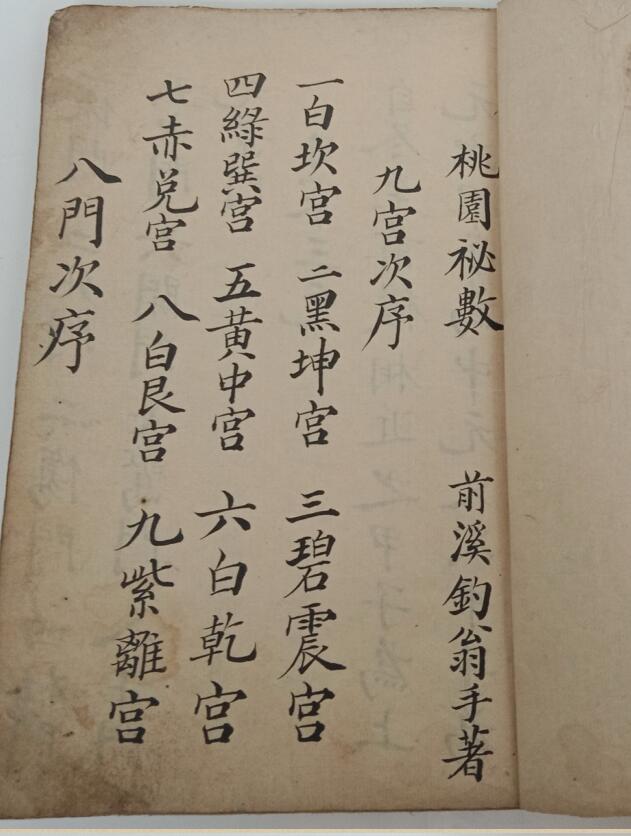 桃園祕數 前溪釣翁手著
九宮次序
一白坎宮 二黑坤宮 三碧震宮
四綠巽宮 五黃中宮 六白乾宮
七赤兑宮 八白艮宮 九紫離宮
八門次序